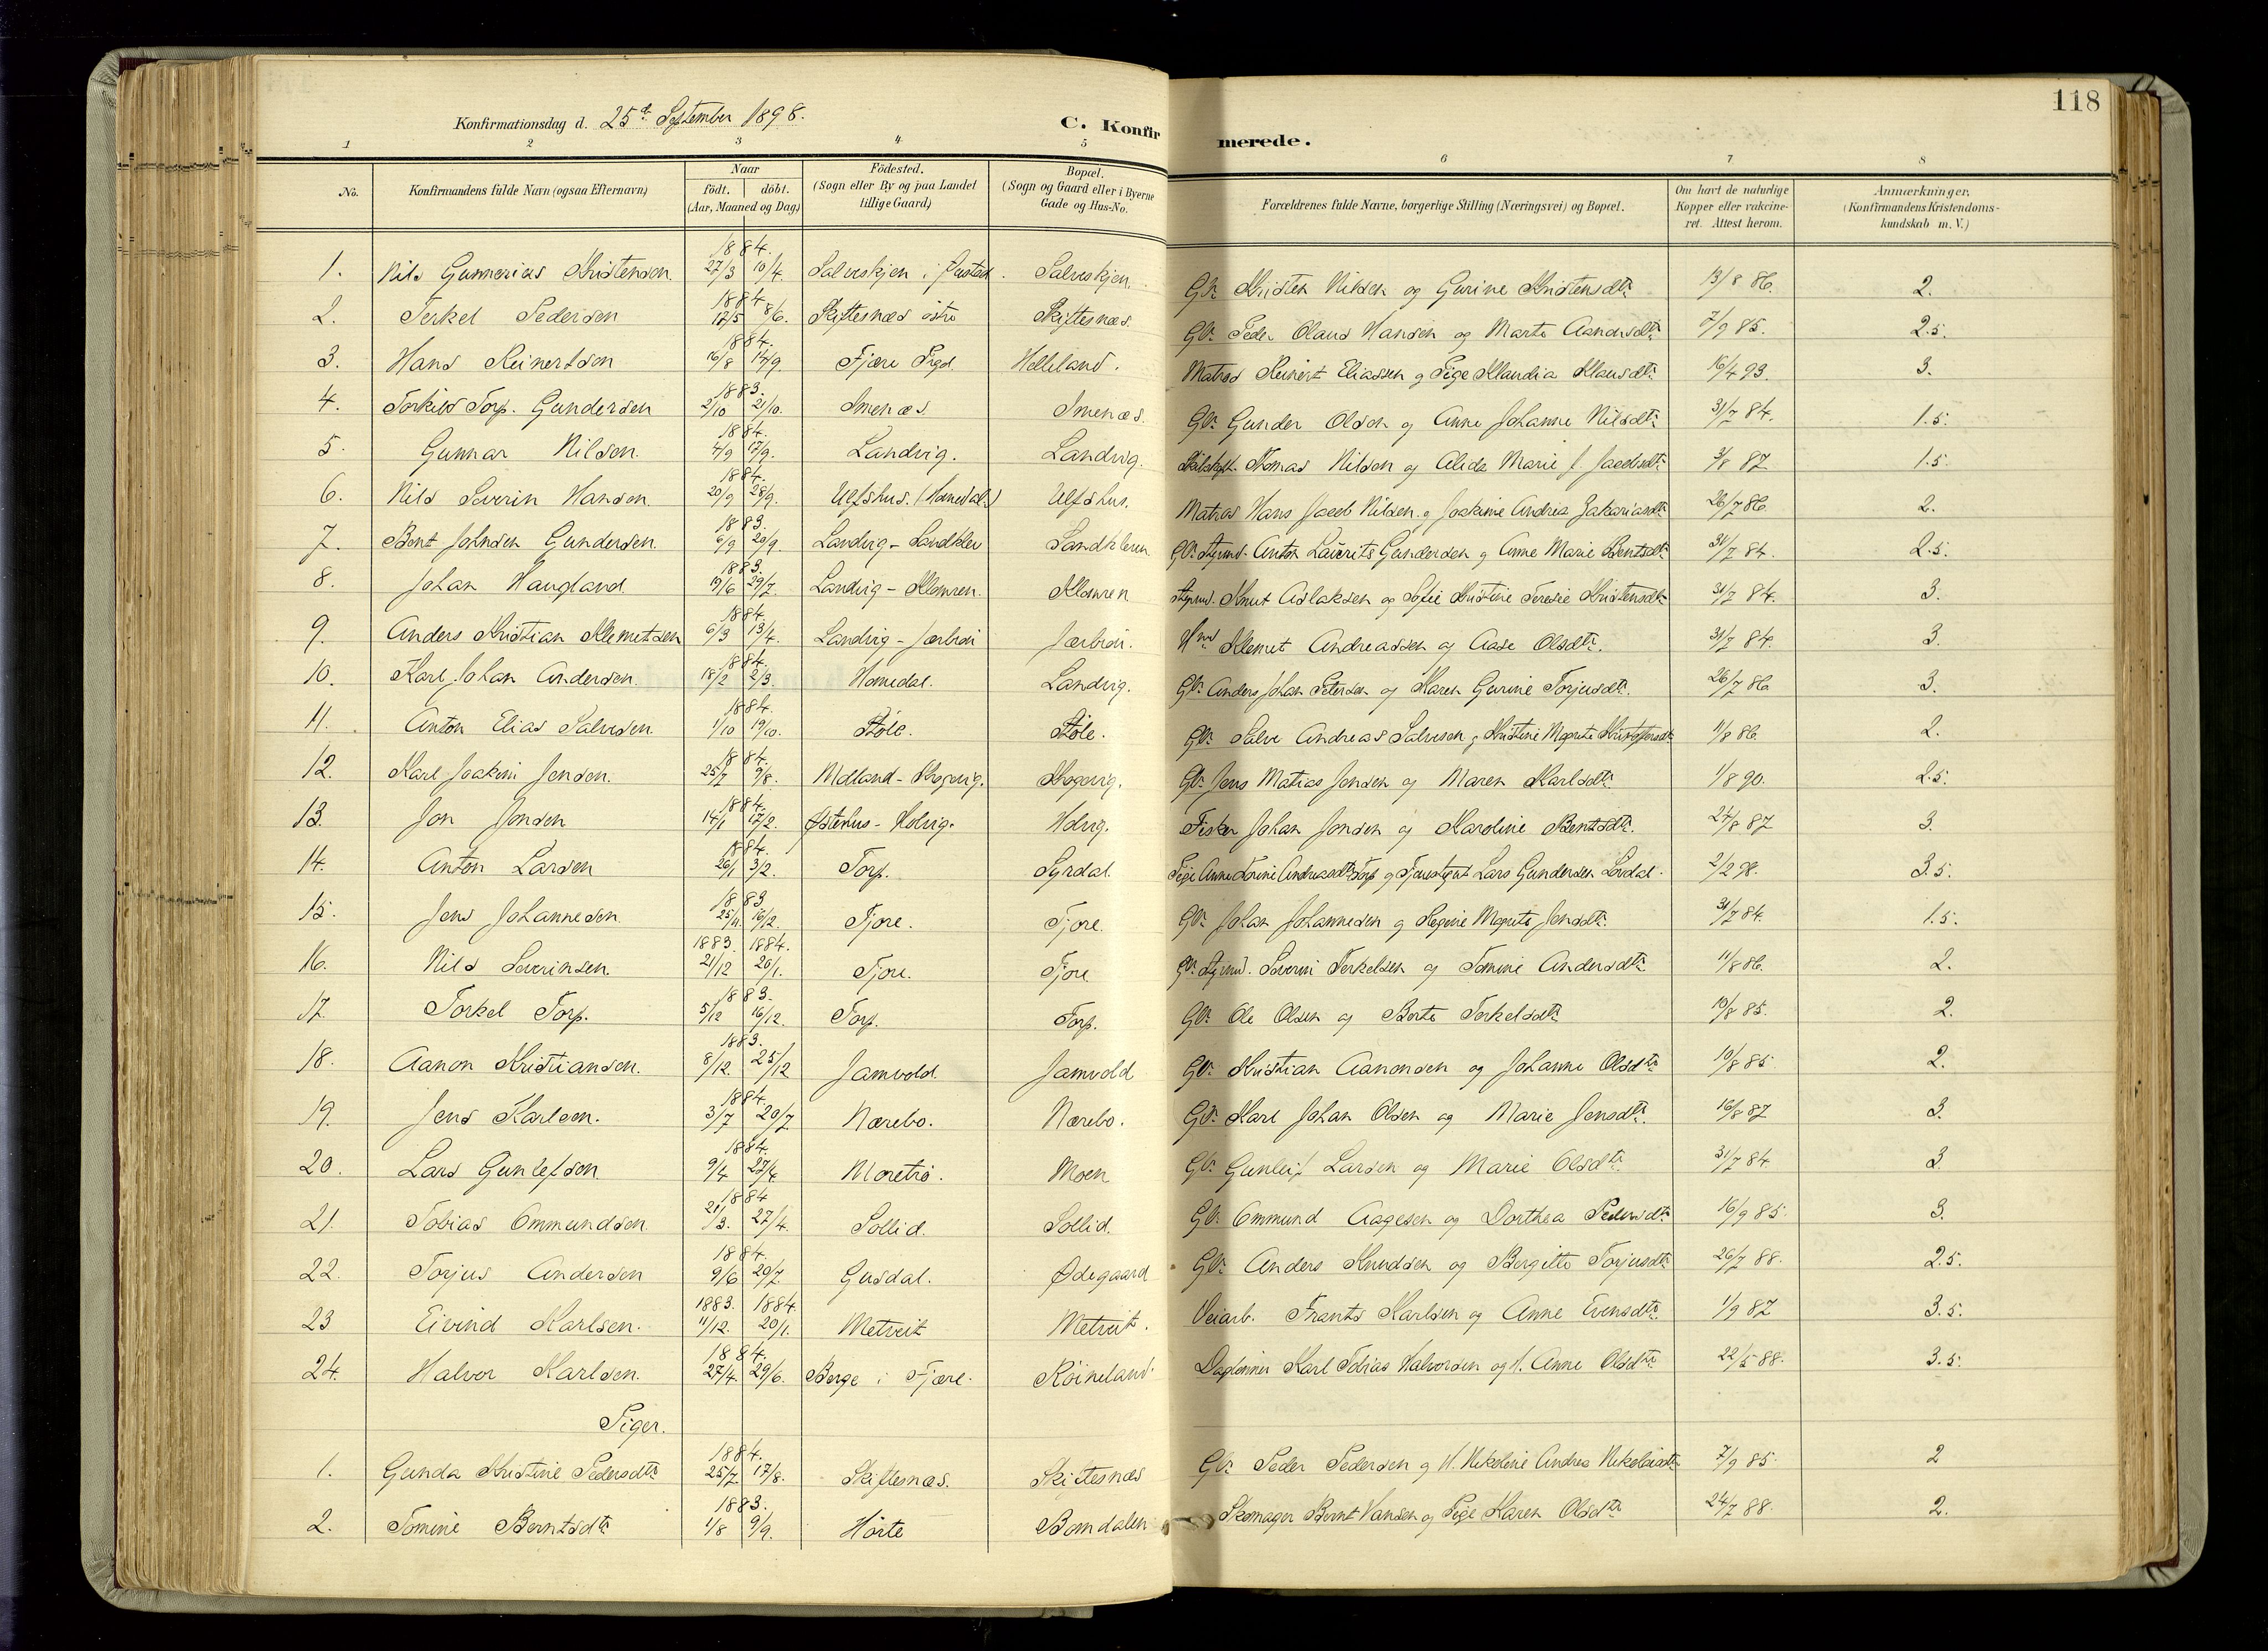 118
Konfirmationsdag d. 25de September 1898.
C. Konfirmerede.
1 2 3 4 5 6 7 8
No. Konfirmandens fulde Navn (ogsaa Efternavn) Naar født. døbt. (Aar, Maaned og Dag) Födested. (Sogn eller By og paa Landet tillige Gaard) Bopæl. (Sogn og Gaard eller i Byerne Gade og Hus-No. Forældrenes fulde Navne, borgerlige Stilling (Næringsvei) og Bopæl. Om havt de naturlige Kopper eller vakcineret. Attest herom. Anmærkninger. (Konfirmandens Kristendomskundskab m. V.)
1. Nils Gunnerius Kristensen. 1884. 27/3 10/4. Salveskjen i Salveskjen. Gbr. Kristen Nilsen og Gurine Kristensdtr. 13/8 86. 2.
2. Terkel Pedersen 1884. 17/5 8/6. Skiftesnæs østre Skiftesnæs. Gbr. Peder Olaus Hansen og Marte Aanensdtr. 7/9 85. 2.5.
3. Hans Reinertsen 1884. 16/8 14/9. Fjære Sogn Helleland. Matros Reinert Eliassen og Pige Klaudia Klausdtr. 16/4 93. 3.
4. Torkild Torp. Gundersen 1883. 2/10 21/10. Imenæs. Imenæs. Gbr. Gunder Olsen og Anne Johanne Nilsdtr. 31/7 84. 1.5.
5. Gunnar Nilsen. 1884. 4/9 17/9. Landvig. Landvig. Tomas Nilsen og Alida Marie J. Jacobsdtr. 3/8 87 1.5.
6. Nils Severin Hansen. 1884. 20/9 28/9. Ulfshus. (Homedal) Ulfshus. Matros Hans Jacob Nilsen og Joakime Andrea Zakariasdtr. 26/7 86. 2.
7. Bent Johnsen Gundersen. 1883. 6/9 20/9. Landvig - Sandklev Sandkleven. Gbr. Styrmd. Anton Lauerits Gundersen og Anne Marie Bentsdtr. 31/7 84. 2.5.
8. Johan Haugland 1883. 19/6 29/7. Landvig - Klomren. Klomren Styrmd. Knut Aslaksen og Sofie Kristine Teresie Kristensdtr. 31/7 84. 3.
9. Anders Kristian Klemetsen 1884. 6/3 13/4. Landvig - Jærbrøn Jærbrøn. Hmd Klemet Andreassen og Aase Olsdtr. 31/7 84. 3.
10. Karl Johan Andersen. 1884. 18/2 2/3. Homedal. Landvig. Gbr. Anders Johan Petersen og Karen Gurine Torjusdtr. 26/7 86. 3.
11. Anton Elias Salvesen. 1884. 1/10 19/10. Støle. Støle. Gbr. Salve Andreas Salvesen og Kristine Magrete Kristoffersdtr. 11/8 86. 2.
12. Karl Joakim Jensen. 1884. 25/7 9/8. Molland - Skogevig. Skogevig. Gbr. Jens Matias Jensen og Maren Karlsdtr. 1/8 90. 2.5.
13. Jon Jonsen 1884. 14/1 17/2. Østerhus - Holvig. Holvig. Fisker Johan Jonsen og Karoline Bentsdtr. 24/8 87 3.
14. Anton Larsen 1884. 26/1 3/2. Torp. Syrdal. Pige Anne Torine Andreasdtr. Torp og Lars Gundersen 2/2 98. 3.5.
15. Jens Johannesen 1883 25/11. 16/12. Tjore. Tjore. Gbr. Johan Johannesen og Regine Magrete Jensdtr. 31/7 84. 1.5.
16. Nils Severinsen. 1883. 1884. 21/12 26/1. Tjore. Tjore Gbr. Styrmd. Severin Terkelsen og Tomine Andersdtr. 11/8 86. 2.
17. Torkel Torp. 1883. 5/12 16/12. Torp. Torp. Gbr. Ole Olsen og Berte Torkelsdtr. 10/8 85. 2.
18. Aanon Kristiansen. 1883. 8/12. 25/12 Jamvold. Jamvold Gbr. Kristian Aanonsen og Johanne Olsdtr. 10/8 85. 2.
19. Jens Karlsen. 1884. 3/7 20/7 Nærebo. Nærebo. Gbr. Karl Johan Olsen og Marie Jensdtr. 16/8 87 3.
20. Lars Gunlefsen 1884. 9/4 27/4 Moretrø. Moen Gbr. Gunleif Larsen og Marie Olsdtr. 31/7 84 3.
21. Tobias Ommundsen. 1884 21/3. 27/4. Sollid. Sollid. Gbr. Ommund Aagesen og Dorthea Pedersdtr. 16/9 85. 3.
22. Torjus Andersen 1884. 9/6 20/7. Gusdal. Ødegaard Gbr. Anders Knudsen og Bergitte Torjusdtr. 26/7 88. 2.5.
23 Eivind Karlsen. 1883. 1884. 11/12. 20/1. Metveit Metveit. Veiarb. Frants Karlsen og Anne Evensdtr. 1/9 87 3.5.
24. Halvor Karlsen. 1884. 27/4. 29/6. Berge i Fjære. Röineland. Daglønner Karl Tobias Halvorsen og H. Anne Olsdtr. 22/5 88. 3.5.
Piger.
1. Gunda Kristine Pedersdtr. 1884. 25/7. 17/8. Skiftesnæs. Skiftesnæs Gbr. Peder Pedersen og H. Nikoline Andrea Nikolaisdtr. 7/9 85. 2
2. Tomine Berntsdtr. 1883. 1/8 9/9. Hørte Bomdalen Skomager Bernt Hansen og Pige Karen Olsdtr. 24/7 88. 2.